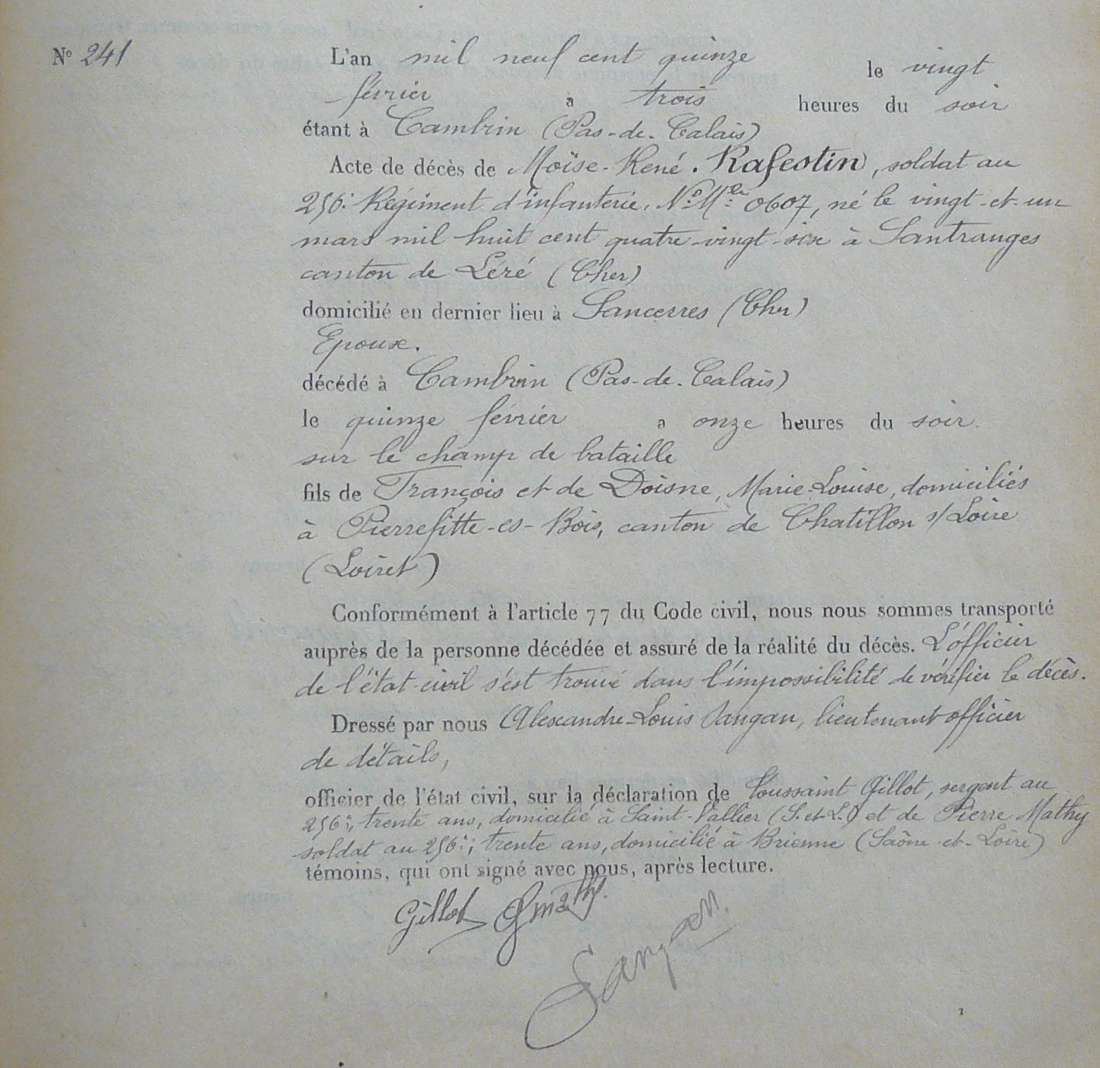 N° 241
L'an mil neuf cent quinze le vingt
février à trois heures du soir
étant à Cambrin (Pas-de-Calais)
Acte de décès de Moïse-René. Rafestin, soldat au
256e Régiment d'infanterie, N° Mle 0607, né le vingt-et-un
mars mil huit cent quatre-vingt-six à Santranges
canton de Léré (Cher)
domicilié en dernier lieu à Sancerres (Cher)
Epoux.
décédé à Cambrin (Pas-de-Calais)
le quinze février a onze heures du soir.
sur le champ de bataille
fils de François et de Doisne, Marie-Louise, domiciliés
à Pierrefitte-es-Bois, canton de Chatillon s/Loire
(Loiret)
Conformément à l'article 77 du Code civil, nous nous sommes transporté
auprès de la personne décédée et assuré de la réalité du décès. L'officier
de l'état-civil s'est trouvé dans l'impossibilité de vérifier le décès.
Dressé par nous Alexandre-Louis Sangan, lieutenant officier
de détails,
officier de l'état civil, sur la déclaration de Toussaint Gillot, sergent au
256e, trente ans, domicilié à Saint-Vallier (S.et-L.) et de Pierre Mathy
soldat au 256e, trente ans, domicilié à Brienne (Saône-et-Loire)
témoins, qui ont signé avec nous, après lecture.
Gillot
Sangan.